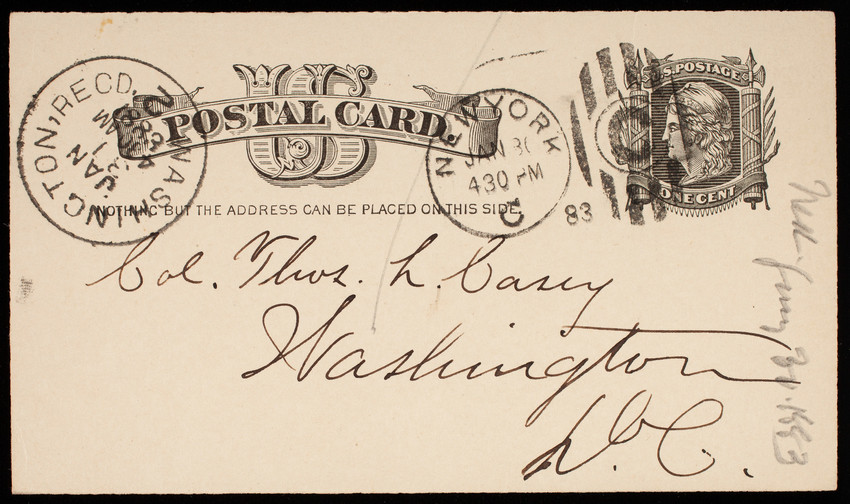 U.S. POSTAGE
US
POSTAL CARD.
ONE CENT
NOTHING BUT THE ADDRESS CAN BE PLACED ON THIS SIDE.
WASHINGTON, RECD.
JAN
NEW YORK
JAN 30
430 PM
83
Col. Thos. L. Casey
Washington
D.C.
1883